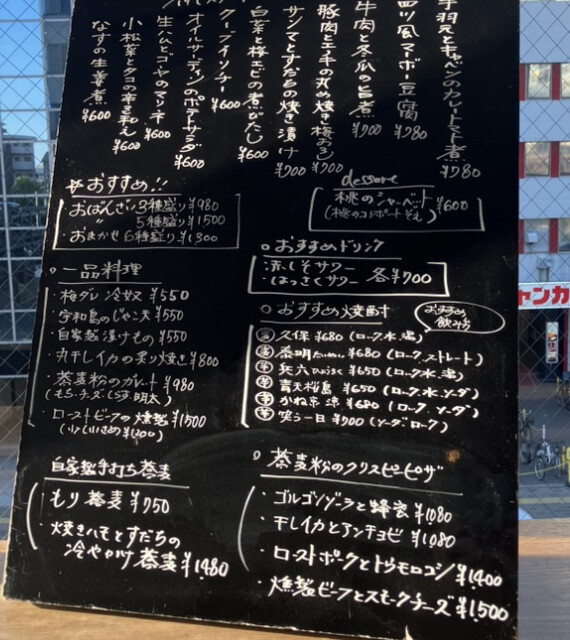 手羽元とキャベツのカレートマト煮 ¥780
四ツ風マーボー豆腐 ¥980
牛肉と冬瓜の旨煮 ¥900
豚肉とエノキの丸焼き梅おろし ¥900
サンマとすだちの焼き漬け ¥900
白菜と桜エビの煮びたし ¥600
クーブイリチー ¥600
オイルサーディンのポテトサラダ ¥600
生ハムとゴーヤのマリネ ¥600
小松菜とタコの辛子和え ¥600
なすの生姜煮 ¥600
おすすめ!!
・おばんざい3種盛り ¥980
5種盛り ¥1500
・おまかせ6種盛り ¥1300
dessert
桃のシャーベット ¥600
(桃のコンポートそえ)
。おすすめドリンク
・赤しそサワー
・はっさくサワー 各¥700
。一品料理
・梅ダレ冷奴 ¥550
・宇和島のじゃこ天 ¥550
・自家製漬けもの ¥550
・丸干しイカの炙り焼き ¥800
・蕎麦粉のガレット ¥980
(もち・チーズ しらす 明太)
・ローストビーフの燻製 ¥1500
(少し小さめ ¥1200)
。おすすめ焼酎
おすすめ飲み方
久保 ¥680 (ロック、水、湯)
泰明 たいめい ¥680 (ロック、ストレート)
兵六 ひょうろく ¥650 (ロック、水、湯)
青天桜島 ¥650 (ロック、水、ソーダ)
かね京 ¥680 (ロック、ソーダ)
笑う一日 ¥700 (ソーダ、ロック)
自家製手打ち蕎麦
・もり蕎麦 ¥750
・焼きハモとすだちの
冷やかけ蕎麦 ¥1,480
。蕎麦粉のクリスピーピザ
・ゴルゴンゾーラと蜂蜜 ¥1080
・干しイカとアンチョビ ¥1,080
・ローストポークとトウモロコシ ¥1400
・燻製ビーフとスモークチーズ ¥1,500
ャンカ